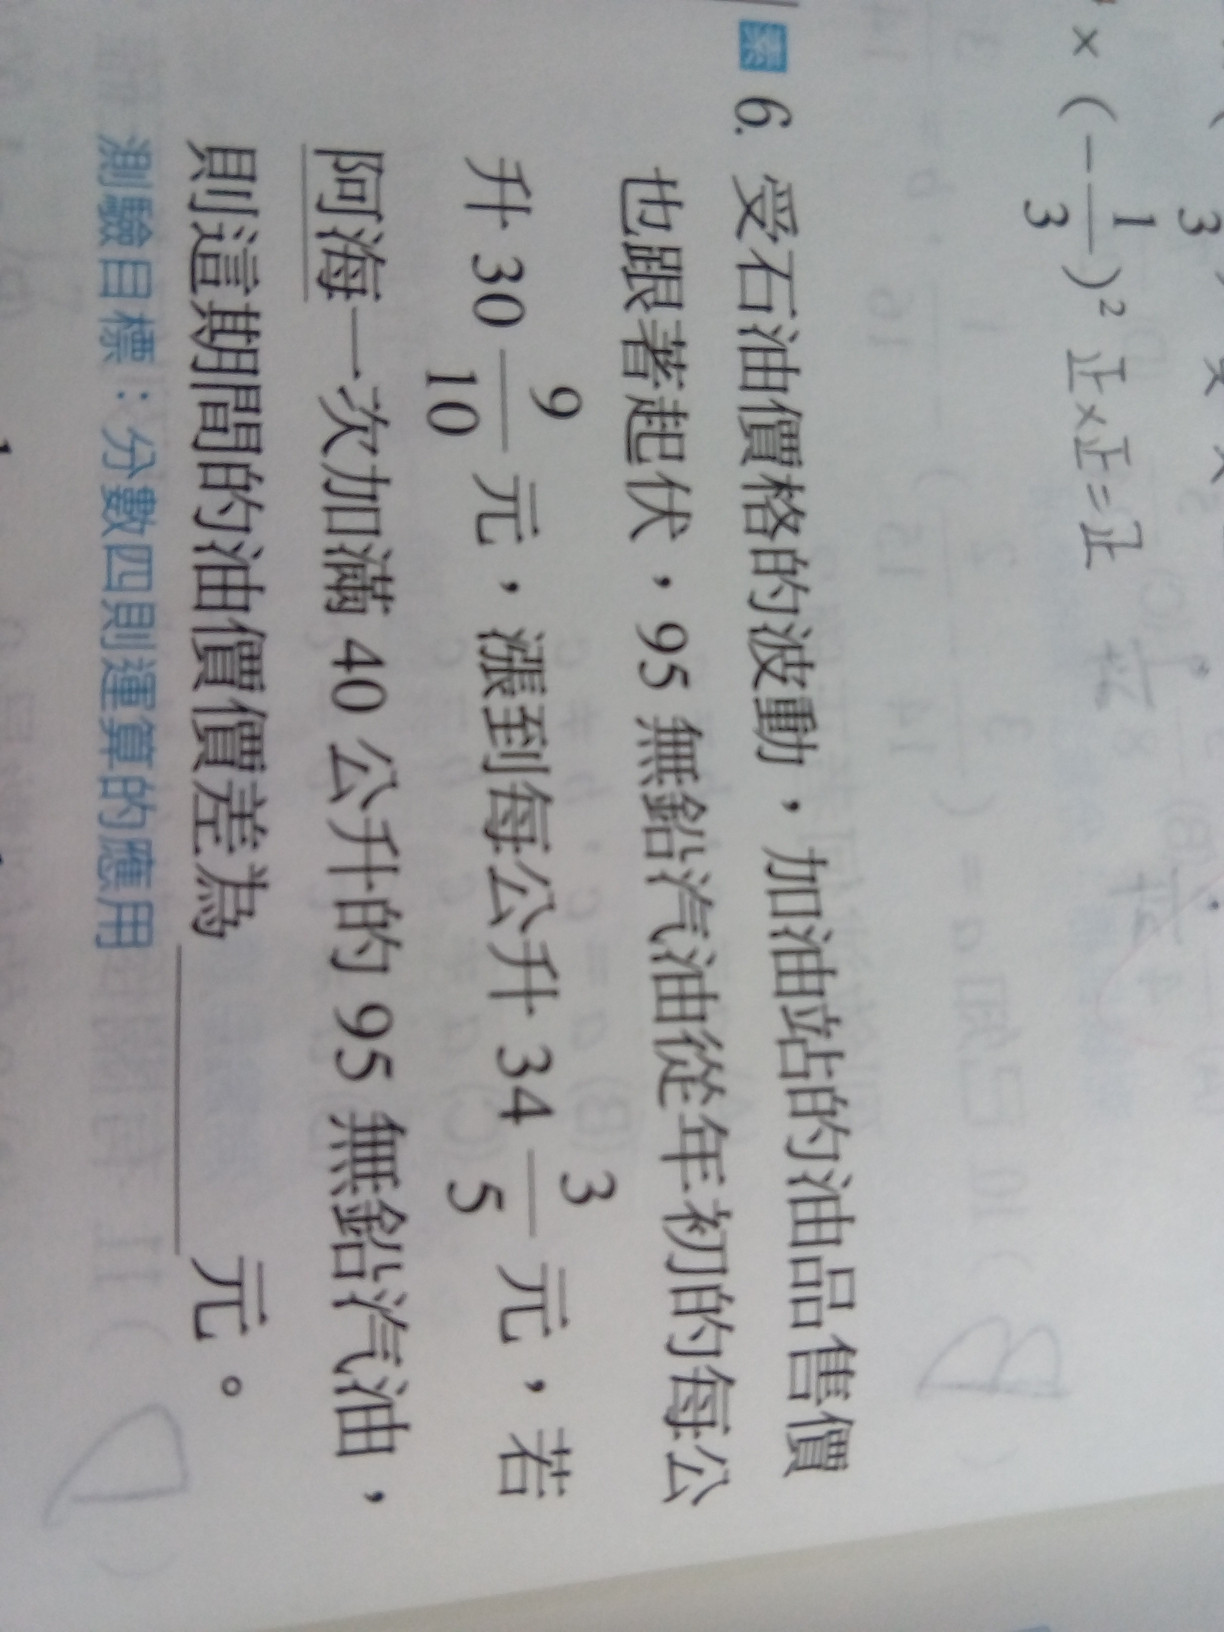 × (-\frac{1}{3})² 正×正=正
素 6. 受石油價格的波動，加油站的油品售價
也跟著起伏，95 無鉛汽油從年初的每公
升 30\frac{9}{10} 元，漲到每公升 34\frac{3}{5} 元，若
阿海一次加滿 40 公升的 95 無鉛汽油，
則這期間的油價價差為＿＿＿＿元。
測驗目標：分數四則運算的應用